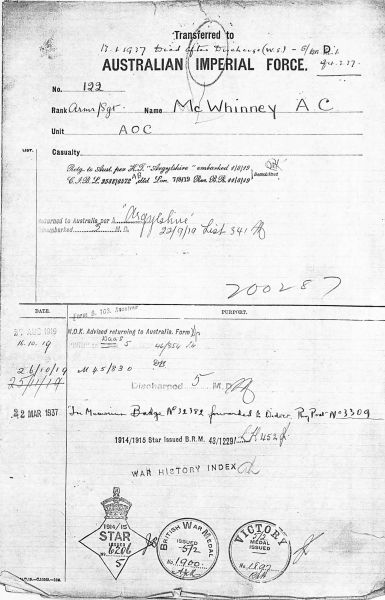 Transferred to
1937 Died after Discharge (W.S.)
AUSTRALIAN IMPERIAL FORCE.
No. 122
Rank Arms/Sgt Name McWhinney A C
Unit AOC
LIST. Casualty
Retg to Aust. per H.T. "Argyllshire" embarked 1/8/19
Returned to Australia per "Argyllshire"
Disembarked 2 M.D. 22/9/19 List 341
200287
DATE. PURPORT.
AUG 1919 N.O.K. Advised returning to Australia. Form
16.10.19 5 46/354
26/10/19 M 45/830
25/11/19 Discharged 5 M.D.
22 MAR 1937 In Memoriam Badge No 32382 forwarded to Widow, Reg Post No 3309
1914/1915 Star Issued B.R.M. 43/1229
WAR HISTORY INDEX
1914/15
STAR
ISSUED
6206
5
BRITISH WAR MEDAL
ISSUED
5/2
No. 1900
VICTORY
5/2
MEDAL
ISSUED
No. 1897